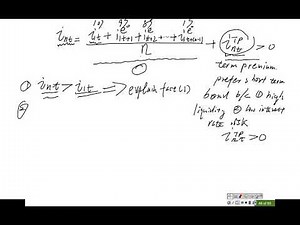 10% 9% 8% 1%
i_nt = (i_t + i^e_1t+1 + i^e_1t+2 + ... + i^e_1t+(n-1)) / n + i^TP_nt > 0
term premium
prefer short term
bond b/c ① high
liquidity ② low interest
rate risk
i^TP_nt > 0
① i_nt > i_1t => explain fact (1)
②